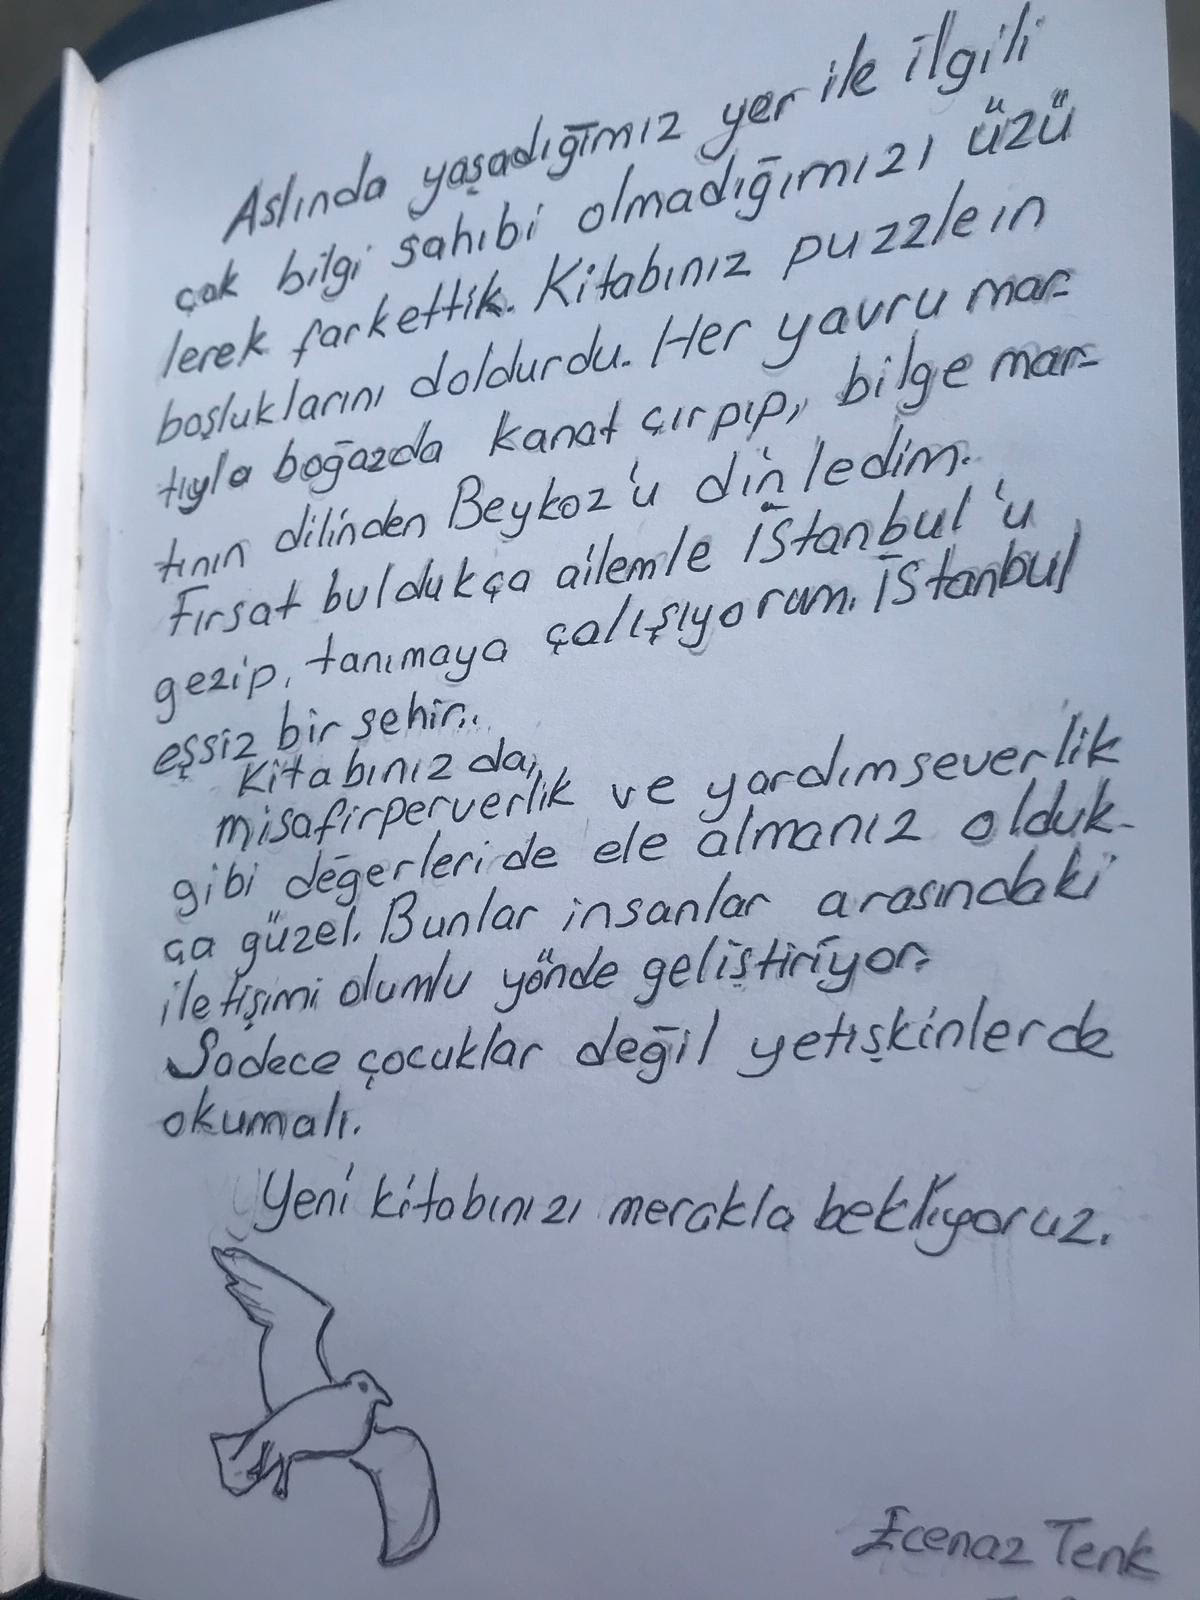 Aslında yaşadığımız yer ile ilgili
çok bilgi sahibi olmadığımızı üzü
lerek farkettik. Kitabınız puzzlein
boşluklarını doldurdu. Her yavru mar-
tıyla boğazda kanat çırpıp, bilge mar-
tının dilinden Beykoz'u dinledim.
Fırsat buldukça ailemle İstanbul'u
gezip, tanımaya çalışıyorum. İstanbul
eşsiz bir şehir..
Kitabınız da,
misafirperverlik ve yardımseverlik
gibi değerleri de ele almanız olduk-
ça güzel. Bunlar insanlar arasındaki
iletişimi olumlu yönde geliştiriyor.
Sadece çocuklar değil yetişkinlerde
okumalı.
Yeni kitabınızı merakla bekliyoruz.
Ecenaz Tenk